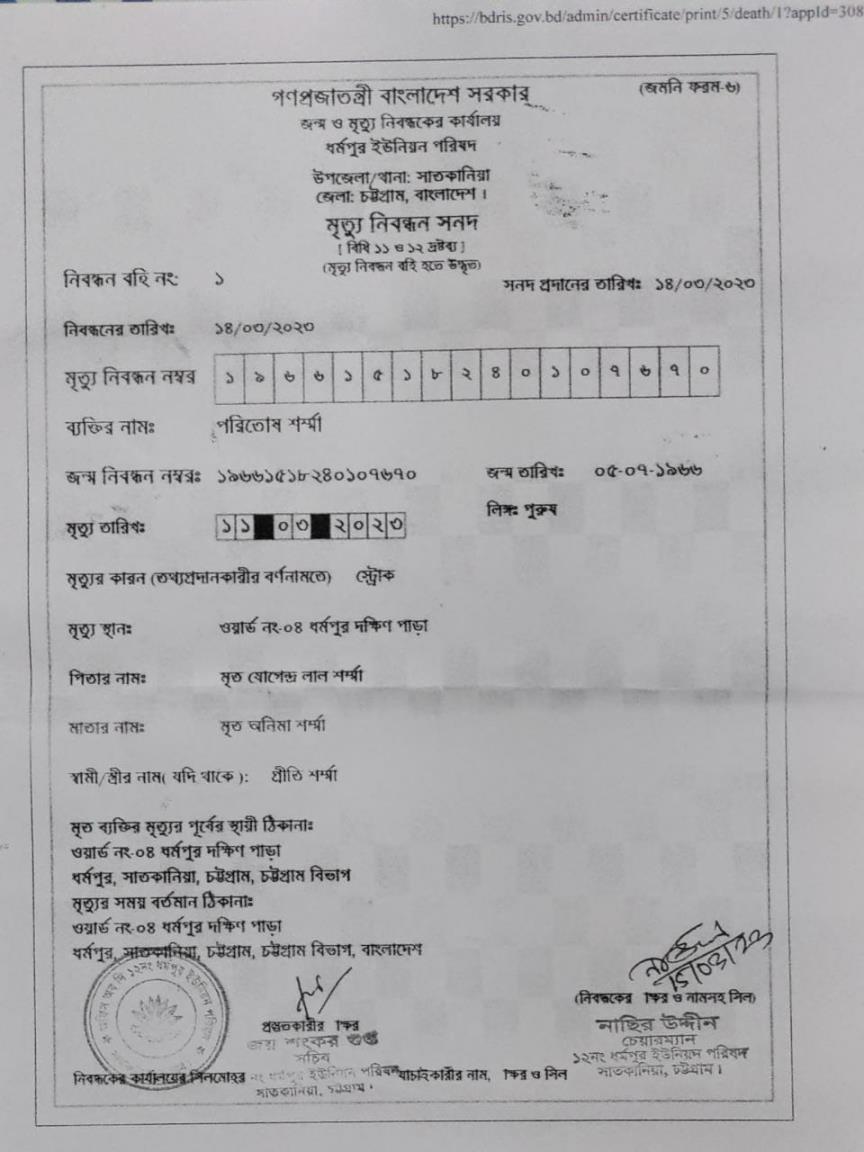 https://bdris.gov.bd/admin/certificate/print/5/death/1?appId=308
গণপ্রজাতন্ত্রী বাংলাদেশ সরকার
(জমনি ফরম-৬)
জন্ম ও মৃত্যু নিবন্ধকের কার্যালয়
ধর্মপুর ইউনিয়ন পরিষদ
উপজেলা/থানা: সাতকানিয়া
জেলা: চট্টগ্রাম, বাংলাদেশ।
মৃত্যু নিবন্ধন সনদ
[ বিধি ১১ ও ১২ দ্রষ্টব্য ]
(মৃত্যু নিবন্ধন বহি হতে উদ্ধৃত)
নিবন্ধন বহি নং: ১
সনদ প্রদানের তারিখঃ ১৪/০৩/২০২৩
নিবন্ধনের তারিখঃ ১৪/০৩/২০২৩
মৃত্যু নিবন্ধন নম্বর ১৯৬৬১৫১৮২৪০১০৭৬৭০
ব্যক্তির নামঃ পরিতোষ শর্ম্মা
জন্ম নিবন্ধন নম্বরঃ ১৯৬৬১৫১৮২৪০১০৭৬৭০ জন্ম তারিখঃ ০৫-০৭-১৯৬৬
মৃত্যু তারিখঃ ১১ ০৩ ২০২৩ লিঙ্গঃ পুরুষ
মৃত্যুর কারন (তথ্যপ্রদানকারীর বর্ণনামতে) স্ট্রোক
মৃত্যু স্থানঃ ওয়ার্ড নং-০৪ ধর্মপুর দক্ষিণ পাড়া
পিতার নামঃ মৃত যোগেন্দ্র লাল শর্ম্মা
মাতার নামঃ মৃত অনিমা শর্ম্মা
স্বামী/স্ত্রীর নাম( যদি থাকে ): প্রীতি শর্ম্মা
মৃত ব্যক্তির মৃত্যুর পূর্বের স্থায়ী ঠিকানাঃ
ওয়ার্ড নং-০৪ ধর্মপুর দক্ষিণ পাড়া
ধর্মপুর, সাতকানিয়া, চট্টগ্রাম, চট্টগ্রাম বিভাগ
মৃত্যুর সময় বর্তমান ঠিকানাঃ
ওয়ার্ড নং-০৪ ধর্মপুর দক্ষিণ পাড়া
ধর্মপুর, সাতকানিয়া, চট্টগ্রাম, চট্টগ্রাম বিভাগ, বাংলাদেশ
১২নং ধর্মপুর ইউনিয়ন পরিষদ
15/03/23
প্রস্তুতকারীর ক্ষির
জয় শংকর গুপ্ত
সচিব
ইউনিয়ন পরিষদ
সাতকানিয়া, চট্টগ্রাম।
(নিবন্ধকের ক্ষির ও নামসহ সিল)
নাছির উদ্দীন
চেয়ারম্যান
১২নং ধর্মপুর ইউনিয়ন পরিষদ
সাতকানিয়া, চট্টগ্রাম।
নিবন্ধকের কার্যালয়ের সিলমোহর
যাচাইকারীর নাম, ক্ষির ও সিল